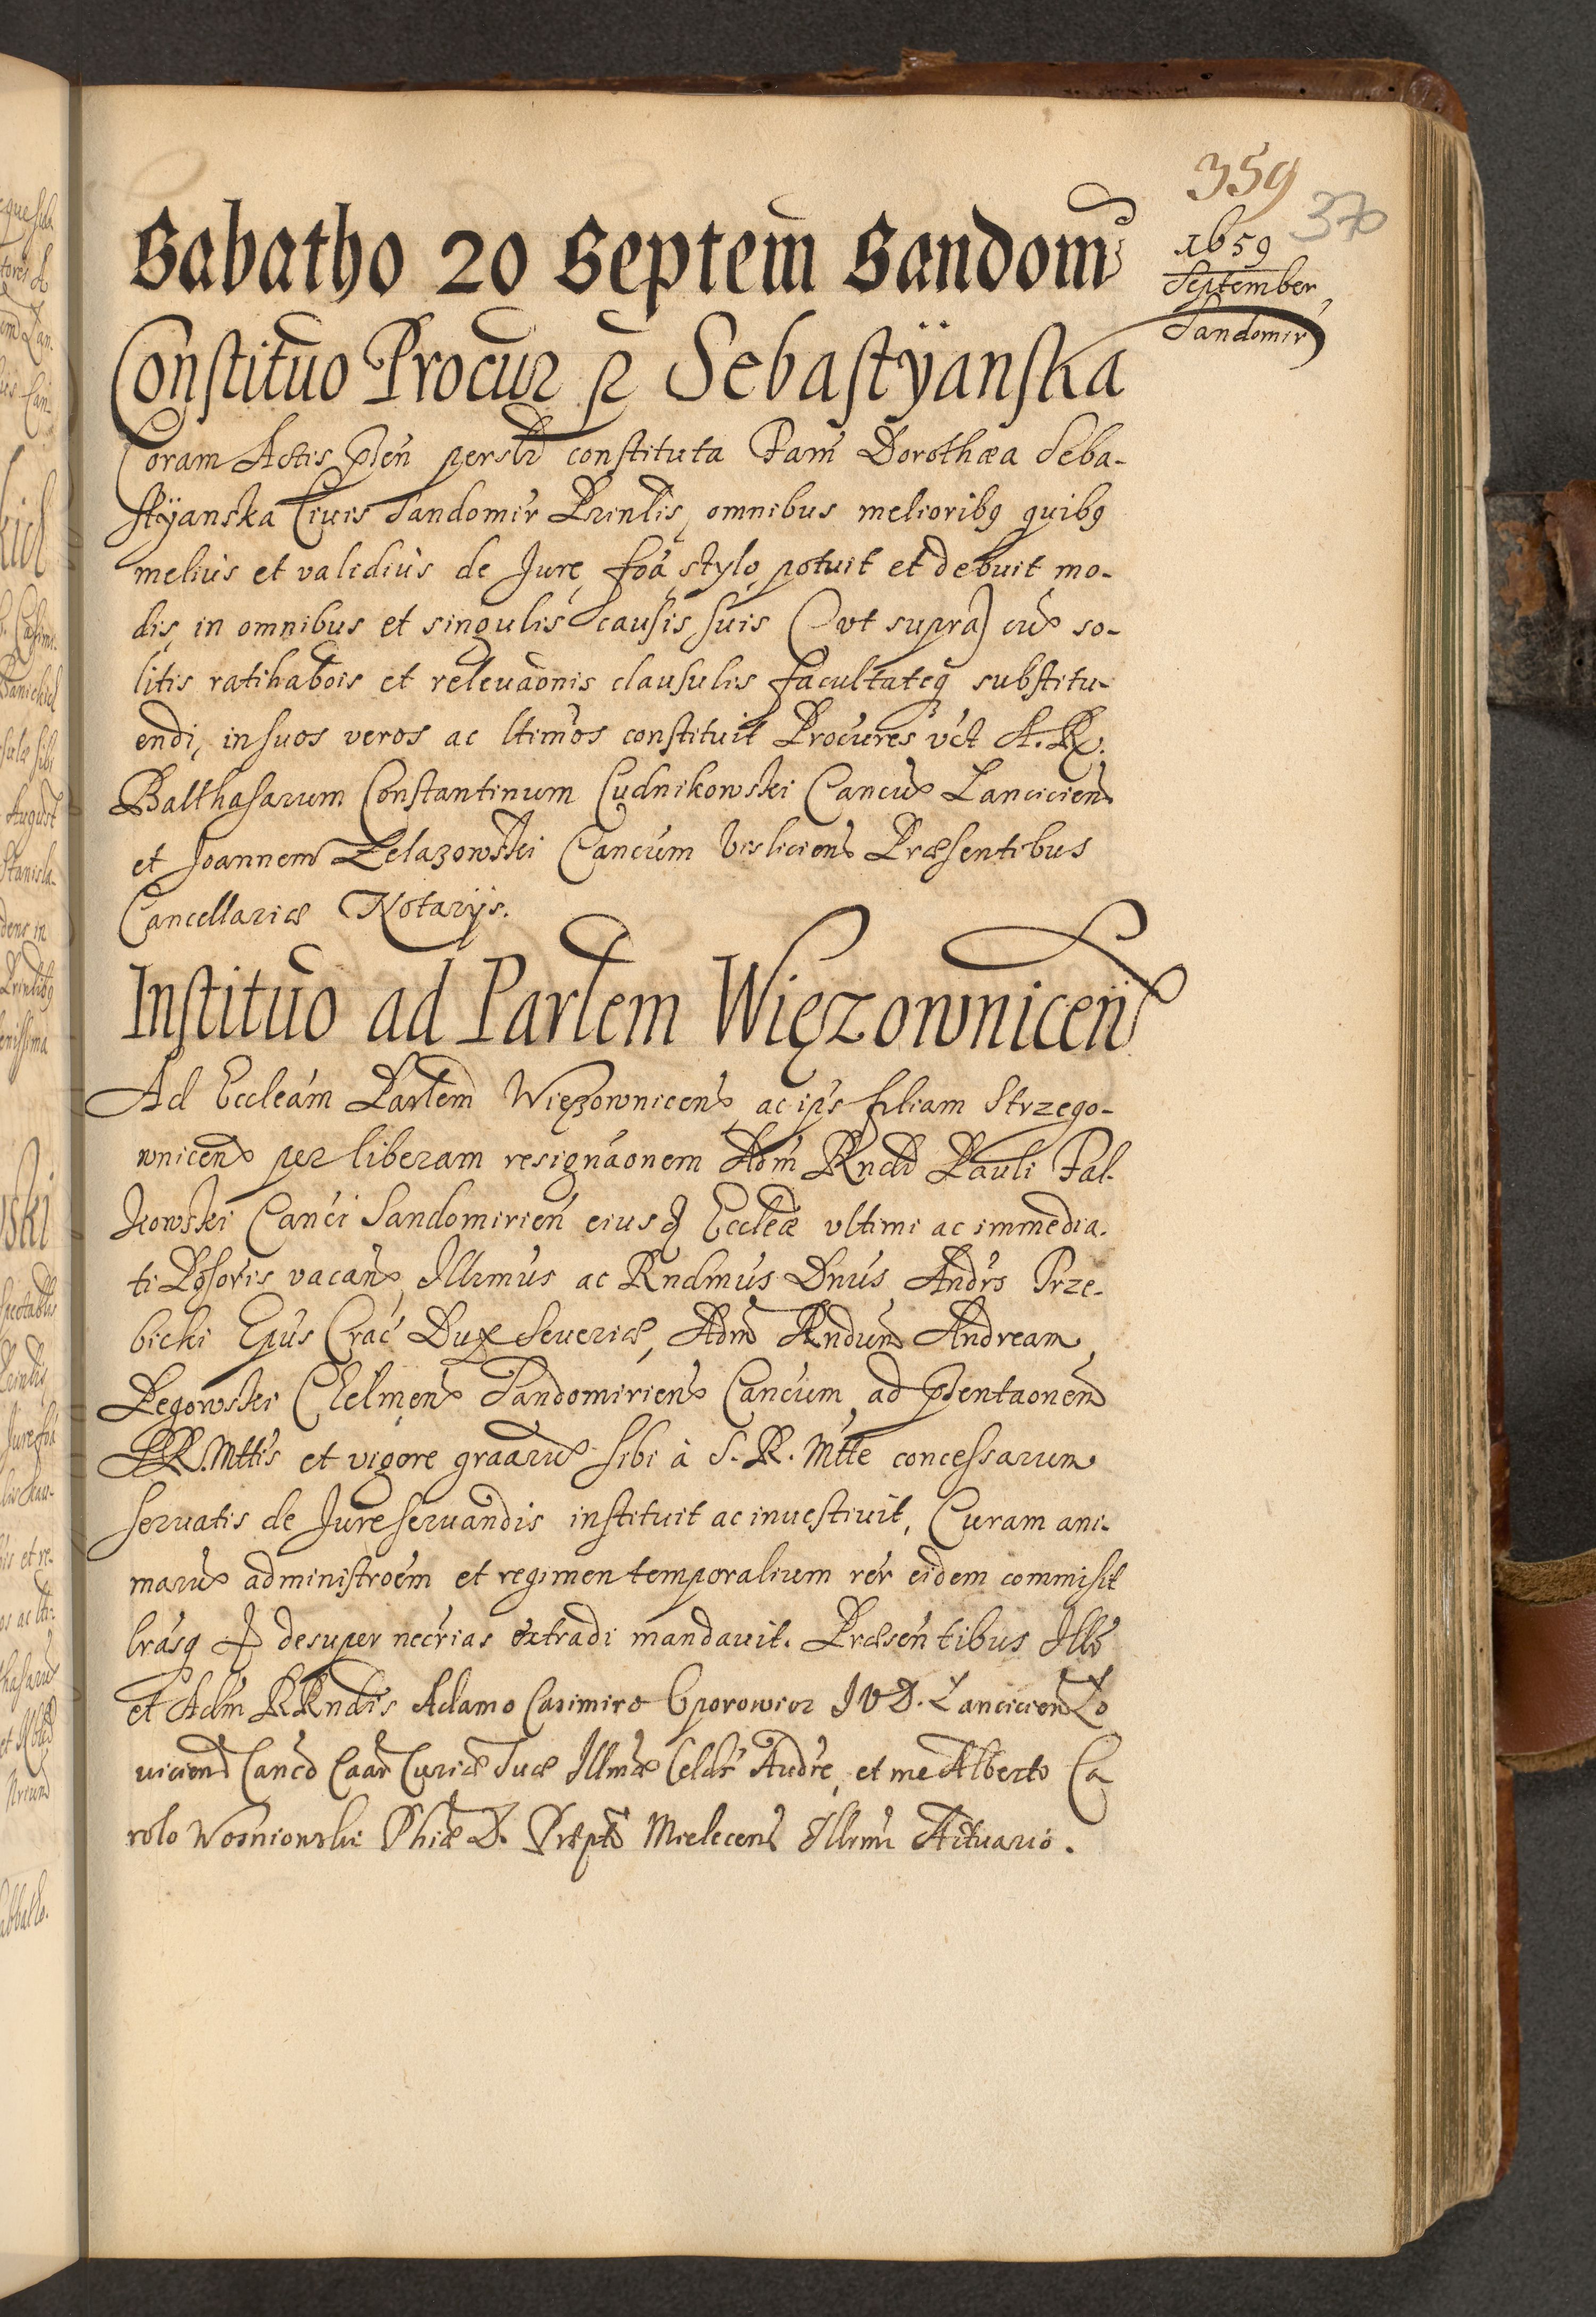 359
370
1659
September
Sandomir
Sabatho 20 Septem̃ Sandom̃
Constitũo Procur p Sebastÿanska
Coram Actis pñ personlr constituta Fam Dorothæa Seba-
stÿanska Civis Sandomir Prinlis, omnibus melioribq quibq
melius et validius de Jure, foã stylo potuit et debuit mo-
dis, in omnibus et singulis causis suis (vt supra) cum so-
litis ratihabõis et releuãonis clausulis facultateq substitu-
endi, in suos veros ac ltimos constituit Procures vct A. R.
Balthasarum Constantinum Cudnikowski Cancum Lanciciens
et Joannem Zelazowski Cancum Visliciens Præsentibus
Cancellariæ Notarÿs.
Institũo ad Parlem Więzowniceñ
Ad Eccleãm Parlem Więzownicens, ac ips filiam Strzego-
wnicens per liberam resignãonem Adm Rndi Pauli Fal-
kowski Canci Sandomirien eiusq Eccleæ vltimi ac immedia-
ti Possoris vacans, Illrmus ac Rndmus Dnus Andrs Trze-
bicki Epus Crac Dux Seueriæ, Adm Rndum Andream
Pegowski Chelmens Sandomiriens Cancum, ad pñtaonem
S.R. Mttis et vigore graarum sibi à S. R. Mtte concessarum
seruatis de Jure seruandis instituit ac inuestiuit, Curam ani-
marum administroem et regimen temporalium rer eidem commisit
lrasq desuper necrias extradi mandauit. Præsentibus Illo
et Adm RRndis Adamo Casimiro Oporowicz J V D. Lanciciens Lo
uiciens Canco Caar Curiæ Suæ Illmæ Celds Audre, et me Alberto Ca
rolo Wosniowski Phiæ D. Præpto Mielecens Illrmi Actuario.